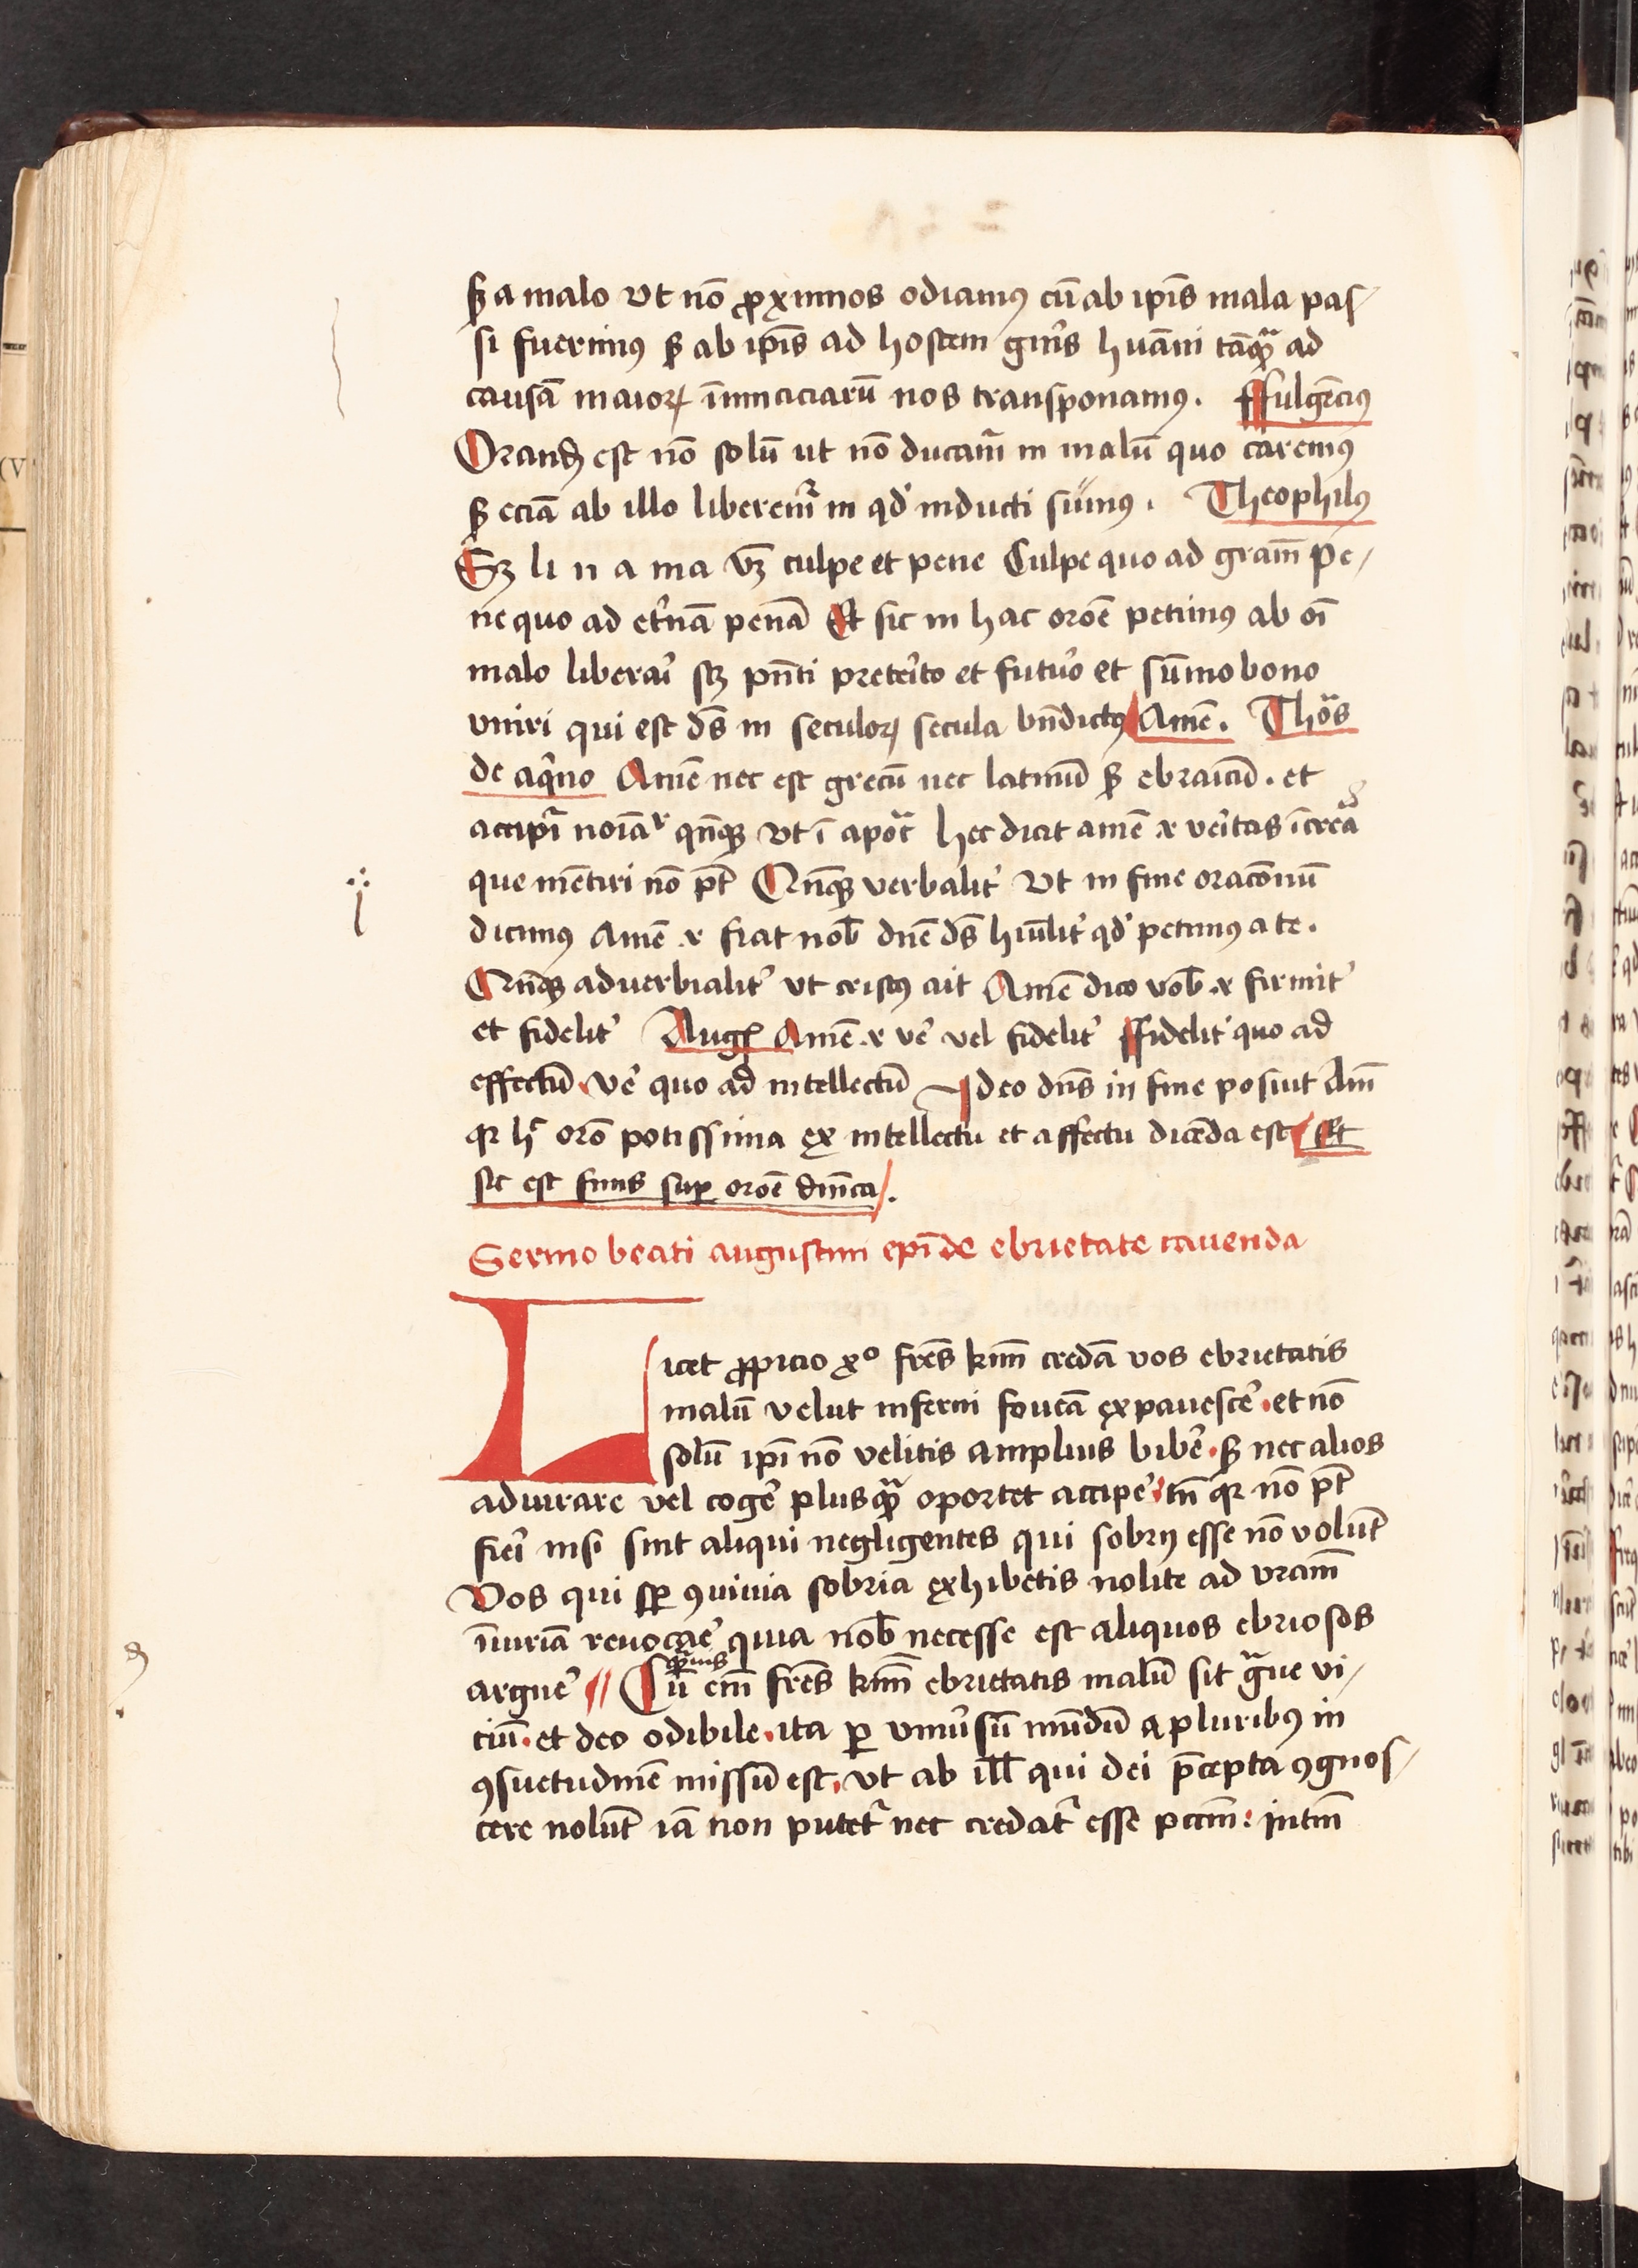 sꝫ a malo vt nō ꝓximos odiamꝰ cū ab ip̄is mala pas/
si fuerimꝰ sꝫ ab ip̄is ad hostem gn̄is hūani tāqᷓ ad
causā maioꝝ īimiciciarū nos transponamꝰ. ffulgēcius
Orandū est nō solū ut nō ducam̄ in malū quo caremꝰ
sꝫ eciā ab illo liberem̄ in qd' inducti sumꝰ. Theophilꝰ
Sꝫ li n a ma vꝫ culpe et pene Culpe quo ad gram̄ Pe/
ne quo ad et'nā penā Et sic in hac oroē petimꝰ ab oī
malo liberai' sꝫ pn̄ti preteito et futuo et sūmo bono
vniri qui est ds̄ in seculoꝝ secula bn̄dictꝰ Amē. Thōs
de aq'no Amē nec est grecū nec latinū sꝫ ebraicū. et
accipi' noīar qn̄qꝫ vt ī apoc̄ hec dicit amē .i. veitas īcrea
que mētiri nō pt̄ Qn̄qꝫ verbalit' vt in fine oraconū
dicimꝰ Amē .i. fiat nob̄ dn̄e ds̄ hūilit' qd' petimꝰ a te.
Qn̄qꝫ aduerbialit' vt cristꝰ ait Amē dico vob̄ .i. firmit'
et fidelit' Augꝰ Amē .i. ve' vel fidelit' ffidelit' quo ad
effectū ve' quo ad intellectū Ideo dn̄s in fine posuit Am̄
qꝛ hᷓ orō potissima ex intellectu et affectu dicēda est Et
sic est finis sup oroē dn̄ica.
Sermo beati augustini epī de ebrietate cauenda
Licet ꝓpicio xᵒ frēs km̄ credā vos ebrietatis
malū velut inferni foueā expauesce' et nō
solū ip̄i nō velitis amplius bibe' sꝫ nec alios
adiurare vel coge' plusqᷓ oportet accipe' tn̄ qꝛ nō pt̄
fiei' nisi sint aliqui negligentes qui sobrij esse nō volūt
Vos qui sp̄ ꝯuiuia sobria exhibetis nolite ad vram̄
īiuriā reuocae' quia nob̄ necesse est aliquos ebriosos
argue' // Cū em̄ frēs km̄ ebrietatis malū sit gᷓue vi/
ciū et deo odibile ita ꝑ vniu'sū mūdū a pluribꝰ in
ꝯsuetudinē missū est vt ab ill̄ qui dei p̄cepta ꝯgnos/
cere nolūt iā non putet' nec credat' esse pccm̄: intm̄